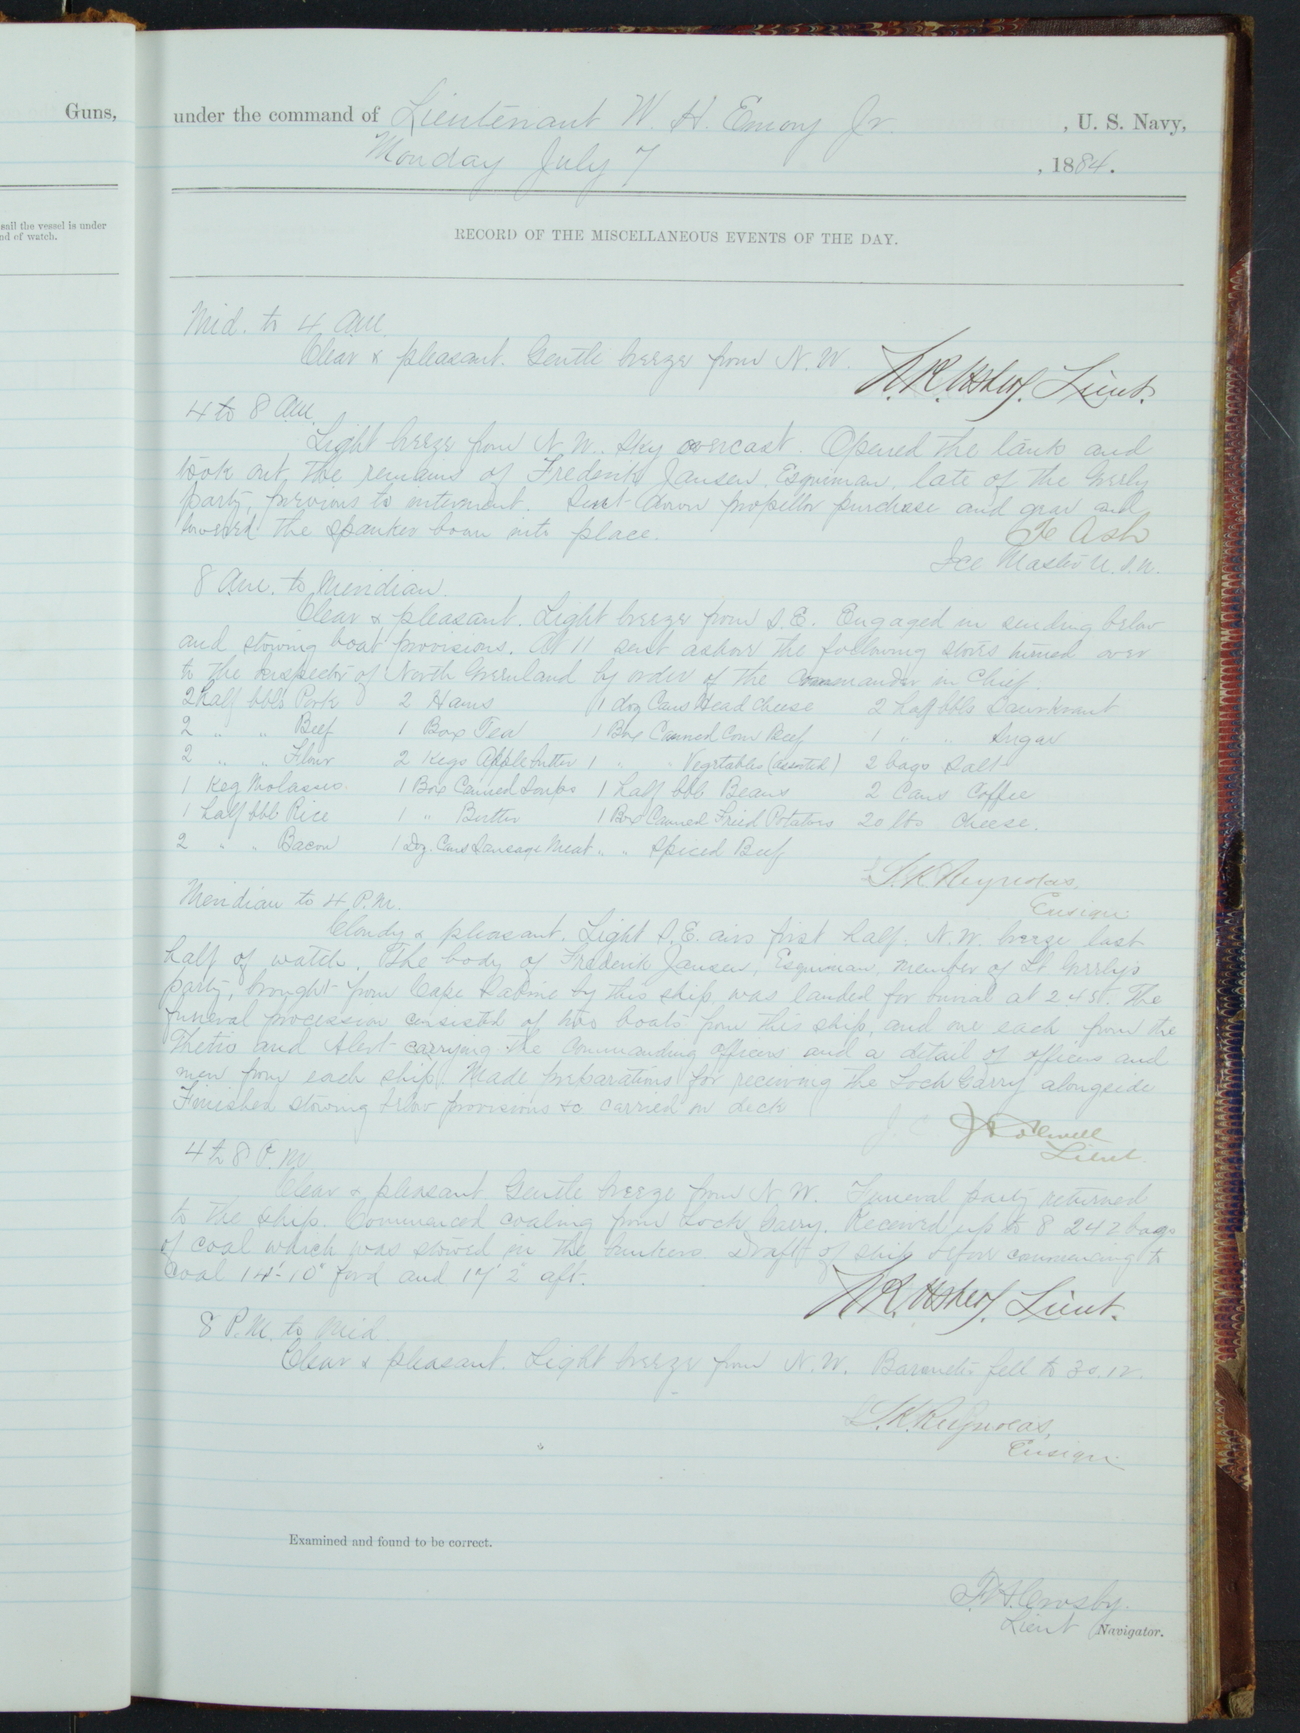 Guns,
under the command of Lieutenant W. H. Emory Jr. , U. S. Navy,
Monday July 7 , 1884.
sail the vessel is under
nd of watch.
RECORD OF THE MISCELLANEOUS EVENTS OF THE DAY.
Mid. to 4 A.M.
Clear & pleasant. Gentle breeze from N. W.
Lieut.
4 to 8 A.M.
Light breeze from N. W. Sky overcast. Opened the tank and
took out the remains of Frederik Jansen, Esquimau, late of the Greely
party, previous to interment. Sent down propellor purchase and gear and
lowered the spanker boom into place.
Ash
Ice Master U.S.N.
8 A.M. to Meridian.
Clear & pleasant. Light breeze from S. E. Engaged in sending below
and stowing boat provisions. At 11 sent ashore the following stores turned over
to the inspector of North Greenland by order of the Commander in Chief.
2 half bbls Pork 2 Hams 1 doz Cans Head cheese 2 half bbls Saurkraut
2 " " Beef 1 Box Tea 1 Box Canned Corn Beef 1 " " Sugar
2 " " Flour 2 Kegs Apple butter 1 " " Vegetables (assorted) 2 bags Salt
1 Keg Molasses 1 Box Canned Soups 1 half bbl Beans 2 Cans Coffee
1 half bbl Rice 1 " Butter 1 Box Canned Fried Potatoes 20 lbs Cheese.
2 " " Bacon 1 Doz. Cans Sausage Meat " " Spiced Beef
L.K. Reynolds,
Ensign.
Meridian to 4 P.M.
Cloudy & pleasant. Light S. E. airs first half. N. W. breeze last
half of watch. The body of Frederik Jansen, Esquimau, member of Lt. Greely's
party, brought from Cape Sabine by this ship, was landed for burial at 2 45. The
funeral procession consisted of two boats from this ship, and one each from the
Thetis and Alert carrying the Commanding officers and a detail of officers and
men from each ship. Made preparations for receiving the Loch Garry alongside
Finished stowing below provisions &c carried on deck
J. C. Colwell
Lieut.
4 to 8 P.M.
Clear & pleasant. Gentle breeze from N. W. Funeral party returned
to the ship. Commenced coaling from Loch Garry. Received up to 8 242 bags
of coal which was stowed in the bunkers. Draft of ship before commencing to
coal 14'-10" for'd and 17' 2" aft.
Lieut.
8 P.M. to Mid.
Clear & pleasant. Light breeze from N. W. Barometer fell to 30.12.
L.K. Reynolds,
Ensign.
Examined and found to be correct.
Crosby.
Lieut Navigator.